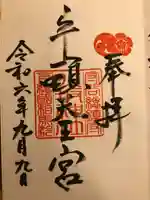 奉拝
牛頭天王宮
令和六年九月九日